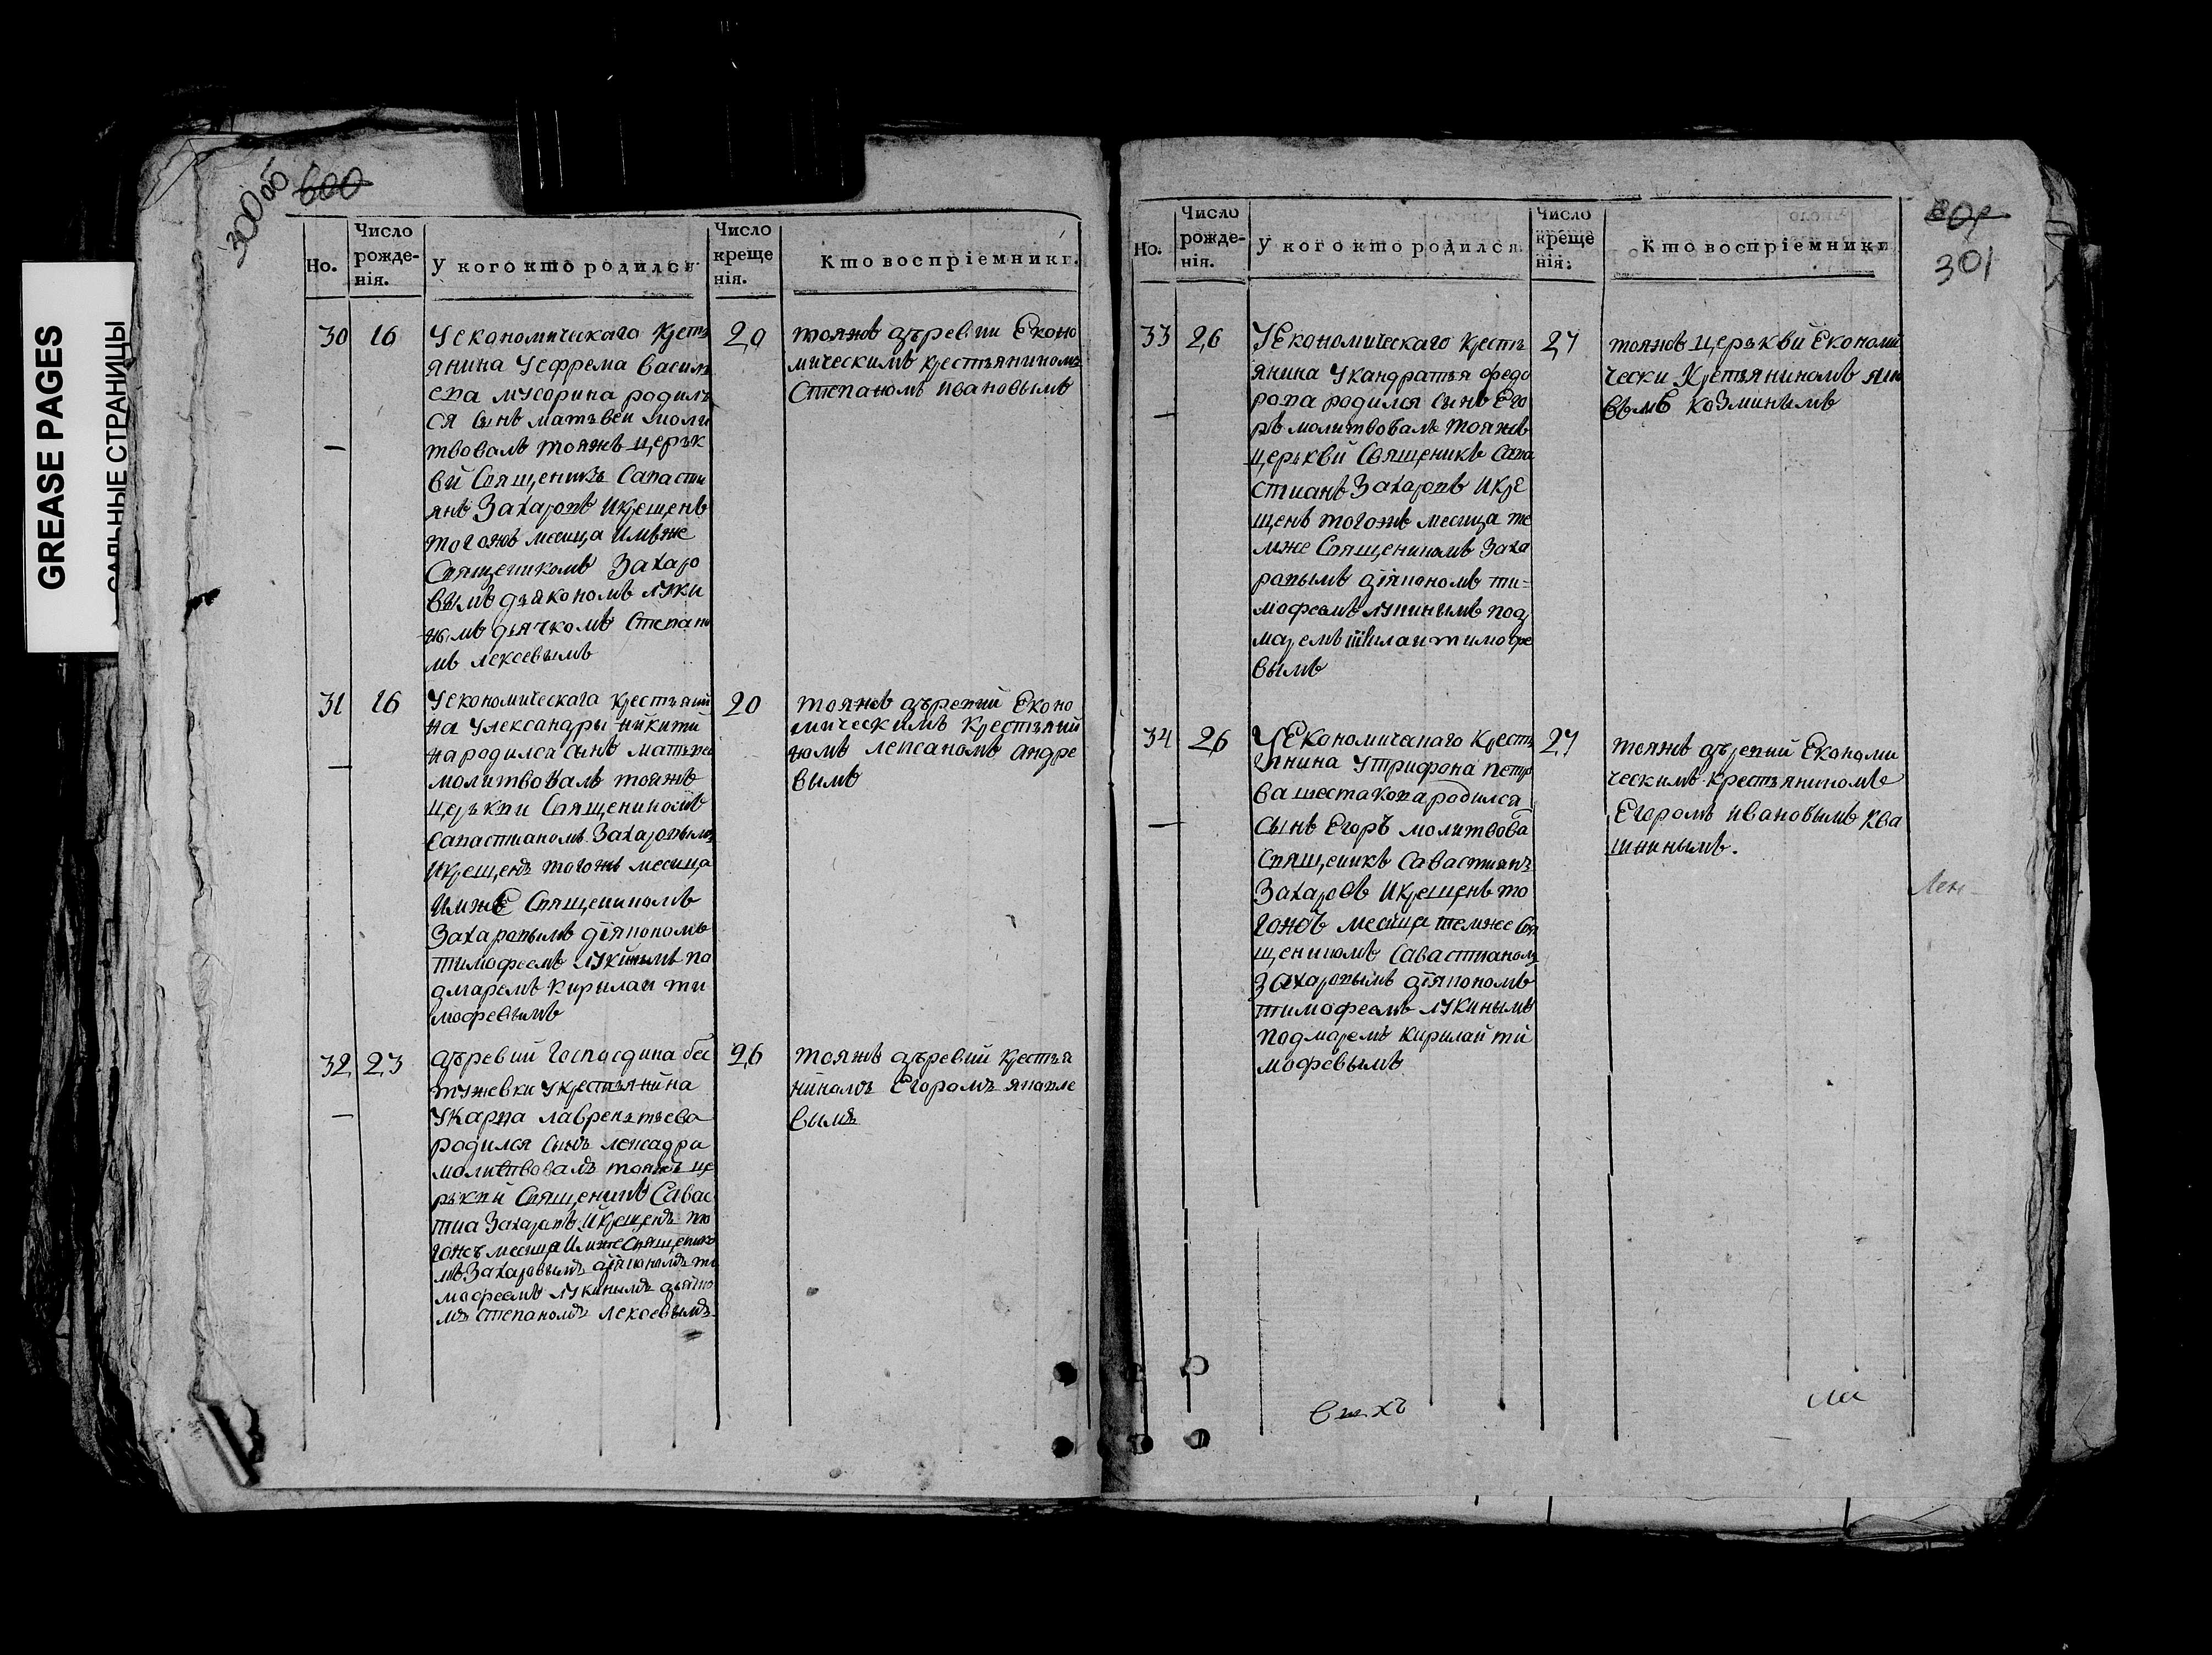 GREASE PAGES
САЛЬНЫЕ СТРАНИЦЫ
300 об
600
Но.
Число рожде-нія.
У кого кто родился
Число креще нія.
Кто воспріемники.
30 16
Уекономическаго крестъ
янина Уефрема василь
ева мусорина родилъ
ся сынъ матъвеи моли
твовалъ тояжъ церък
вй Священикъ Савасти
янъ Захаровъ Икрещенъ
тогожъ месица Имъже
Священикомъ Захаро
вымъ дъякономъ луки
нымъ дьячкомъ Степано
мъ лексевымъ
20
тояжъ дъревни Еконо
мическимъ крестъяниномъ
Степаномъ ивановымъ
31 16
Уекономическага крестъяний
на Улександры никити
на родился сынъ матъвеи
молитвовалъ тояжъ
церъкви Священикомъ
Савастианомъ Захаровымъ
Икрещенъ тогожъ месица
ИмжЕ Священикомъ
Захаровымъ діякономъ
тимофеемъ лукинымъ по
дмаремъ кирилаи ти
мофевымъ
20
тояжъ дъревний Еконо
мическимъ крестъяний
номъ лексаномъ андре
вымъ
32 23
дъревий Господина бес
тужевки Укрестъянина
Укарпа лаврентъева
родился сынъ лексадра
молитвовалъ тояжъ це
ръквй Священикъ Савас
тиа Захаровъ Икрещенъ то
гожъ месица Имже Священико
мъ Захаровымъ діякономъ ти
мофеемъ лукинымъ дьячко
мъ Степаномъ лексевымъ
26
тояжъ дъревий крестъя
ниномъ Егоромъ яковле
вымъ
301
Но.
Число рожде-нія.
У кого кто родился.
Число креще нія.
Кто воспріемники
33 26
УЕкономическаго крестъ
янина Укандратья федо
рова родился сынъ Его
ръ молитвовалъ тояжъ
церъквй Священикъ Сава
стианъ Захаровъ Икре
щенъ тогожъ месица те
мже Священикомъ Заха
ровымъ діякономъ ти=
мофеемъ лукинымъ под
маремъ тимофе
вымъ
27
тояжъ церъквй Економи
чески Крестъяниномъ яко
вымъ козминымъ
34 26
УЕкономическаго Крестъ
янина Утрифона петро
ва шестакова родился
сынъ Егоръ молитвова
Священикъ Савастиянъ
Захаровъ Икрещенъ то
гожъ месица темже Свя
щеникомъ Савастианомъ
Захаровымъ діякономъ
тимофеемъ лукинымъ
подмаремъ кирилай ти
мофевымъ
27
тояжъ дъревний Економи
ческимъ крестъяниномъ
Егоромъ ивановымъ ква
шнинымъ.